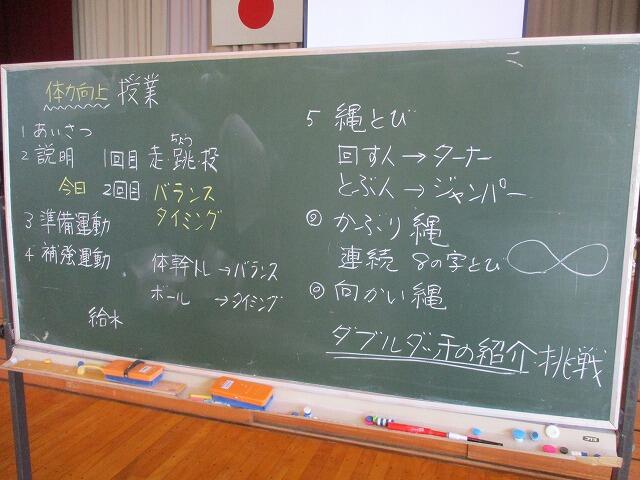 体力向上 授業
1 あいさつ
2 説明 1回目 走・跳・投
ちょう
今日 2回目 バランス
タイミング
3 準備運動
4 補強運動
体幹トレ→バランス
ボール →タイミング
給水
5 縄とび
回す人→ターナー
とぶ人→ジャンパー
◎ かぶり縄
連続 8の字とび ∞
◎ 向かい縄
ダブルダッチの紹介・挑戦